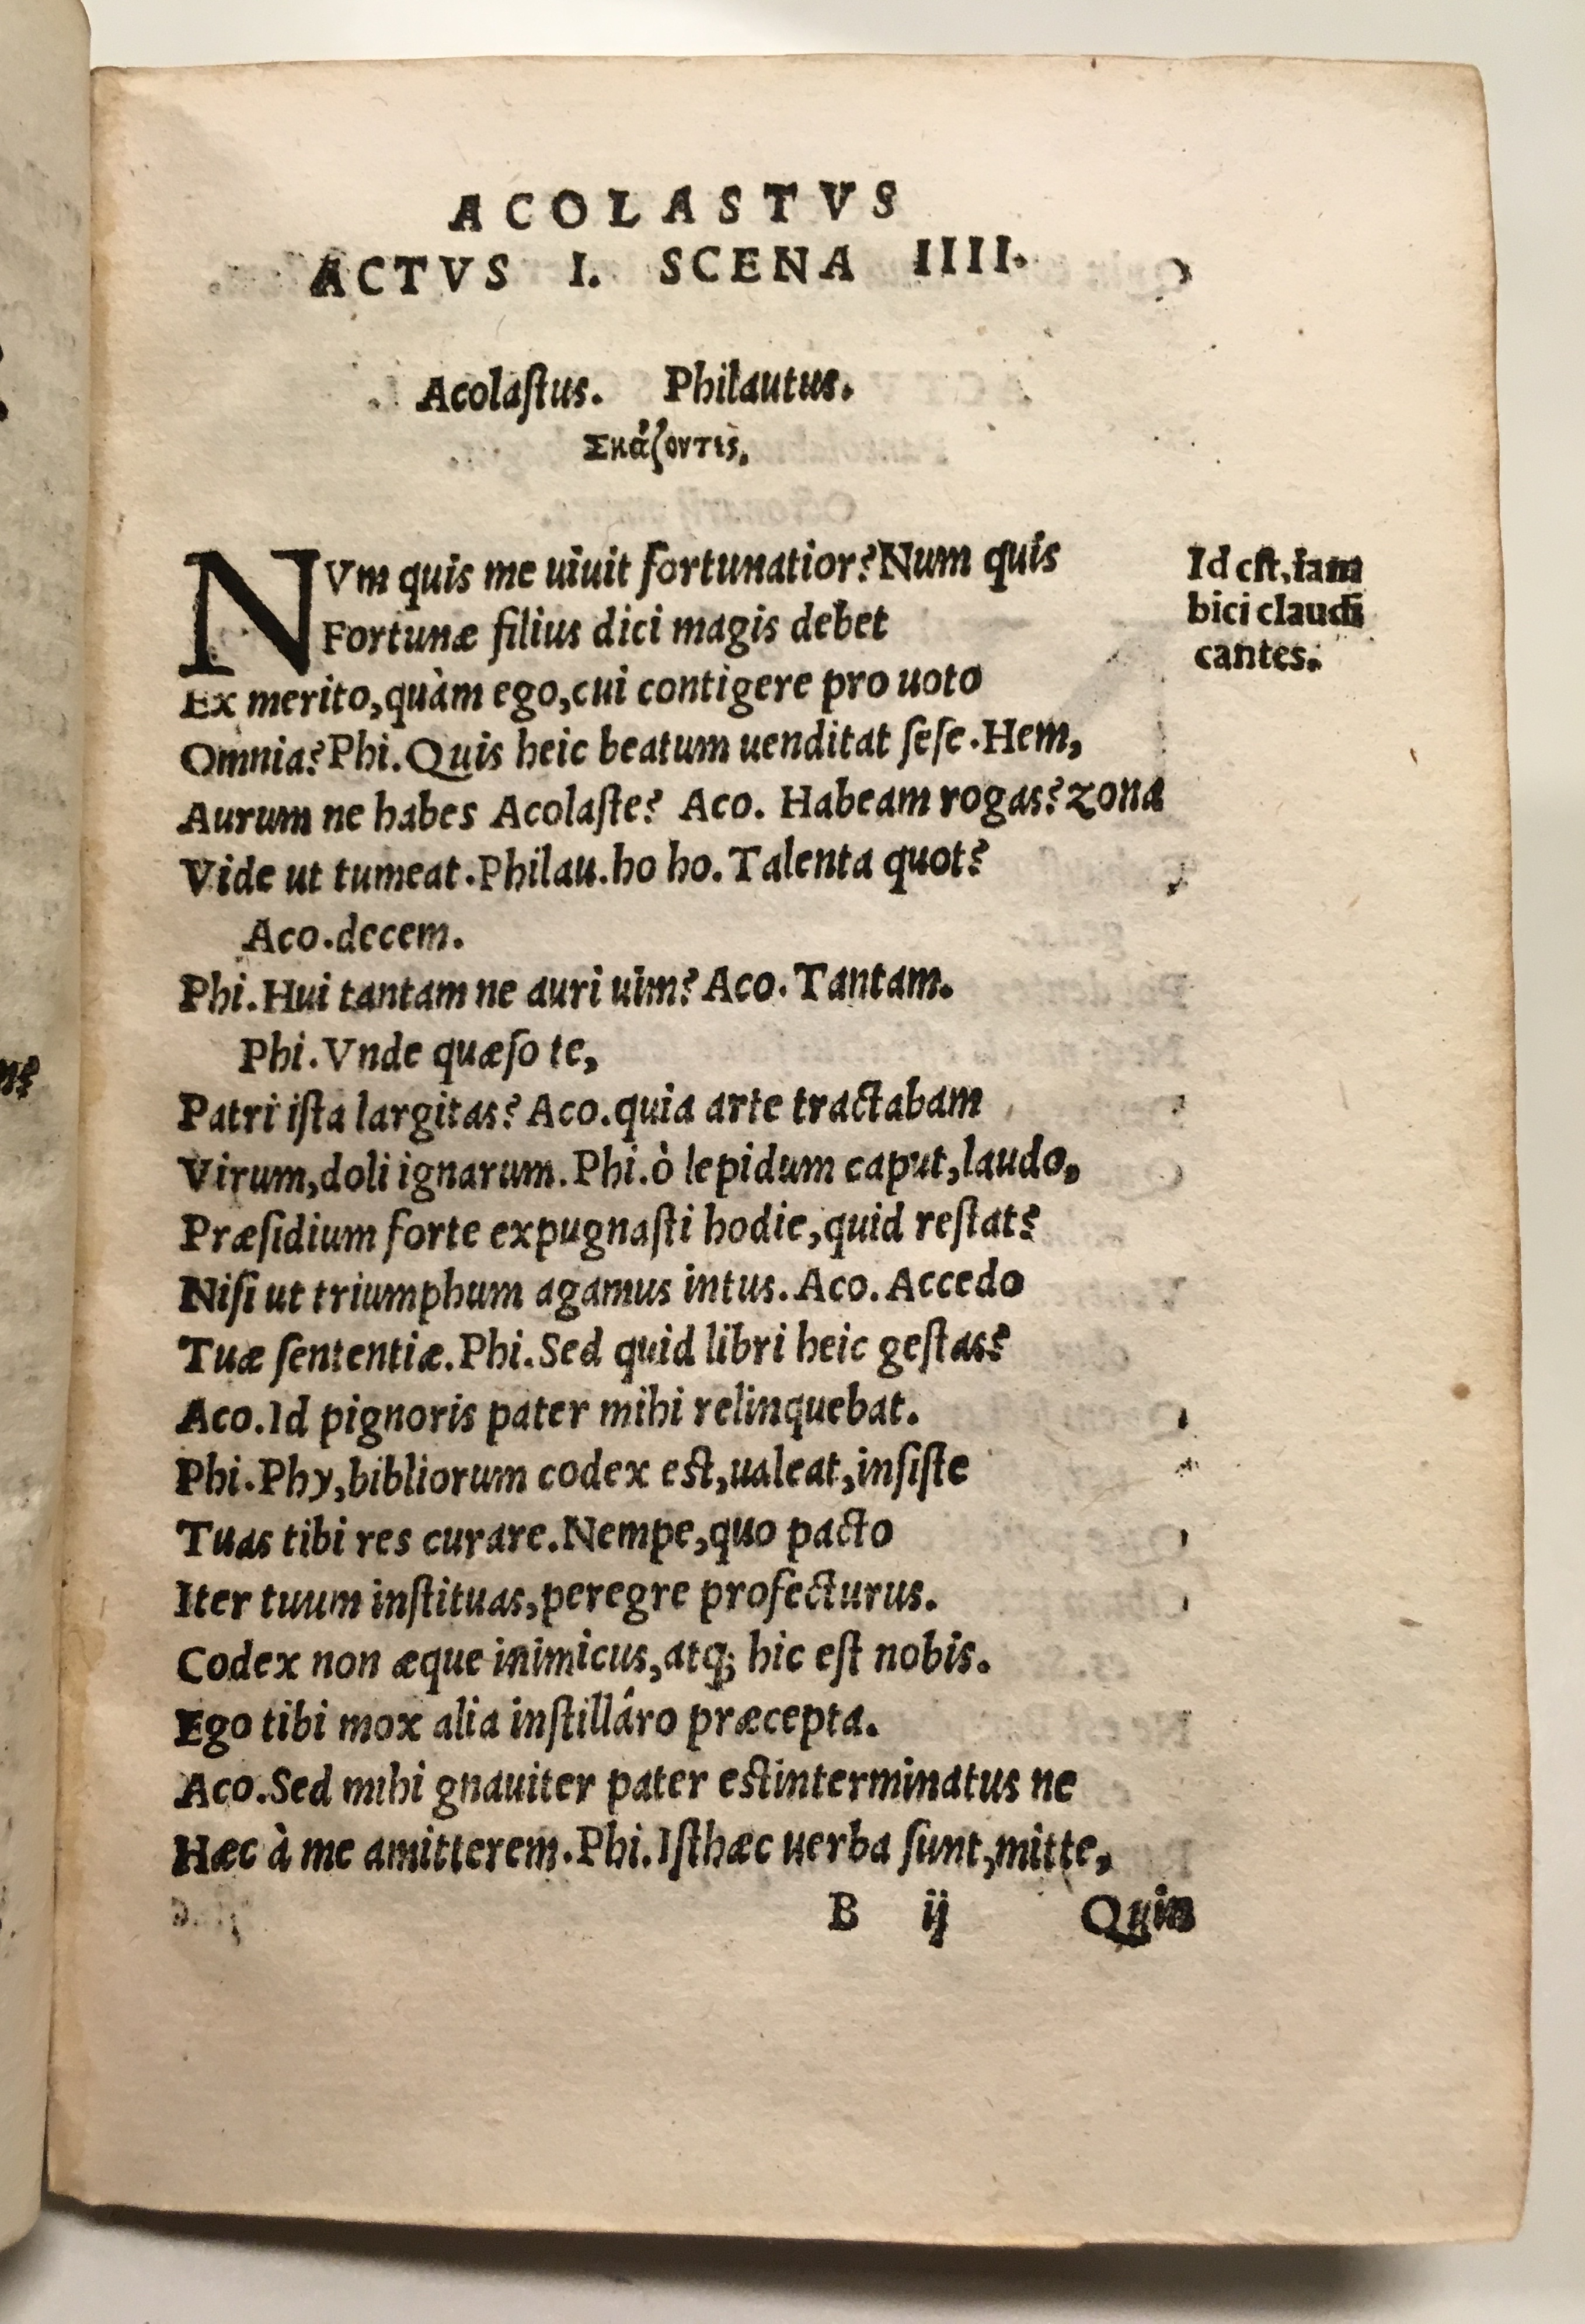 ACOLASTVS
ACTVS I. SCENA IIII.
Acolaſtus. Philautus.
Σκάζοντες.
NVm quis me uiuit fortunatior? Num quis
Fortunæ filius dici magis debet
Ex merito, quàm ego, cui contigere pro uoto
Omnia? Phi. Quis heic beatum uenditat ſeſe. Hem,
Aurum ne habes Acolaſte? Aco. Habeam rogas? zona
Vide ut tumeat. Philau. ho ho. Talenta quot?
Aco. decem.
Phi. Hui tantam ne auri uim? Aco. Tantam.
Phi. Vnde quæſo te,
Patri iſta largitas? Aco. quia arte tractabam
Virum, doli ignarum. Phi. ò lepidum caput, laudo,
Præſidium forte expugnaſti hodie, quid reſtat?
Niſi ut triumphum agamus intus. Aco. Accedo
Tuæ ſententiæ. Phi. Sed quid libri heic geſtas?
Aco. Id pignoris pater mihi relinquebat.
Phi. Phy, bibliorum codex eſt, ualeat, inſiſte
Tuas tibi res curare. Nempe, quo pacto
Iter tuum inſtituas, peregre profecturus.
Codex non æque inimicus, atq; hic eſt nobis.
Ego tibi mox alia inſtilláro præcepta.
Aco. Sed mihi gnauiter pater eſt interminatus ne
Hæc à me amitterem. Phi. Iſthæc uerba ſunt, mitte,
B ij Quin
Id eſt, iam
bici claudi
cantes.